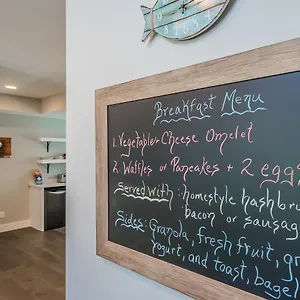 Breakfast Menu
1. Vegetable & Cheese Omelet
2. Waffles or Pancakes + 2 egg
Served With : homestyle hashbr
bacon or sausag
Sides: Granola, fresh fruit, gr
yogurt, and toast, bagel